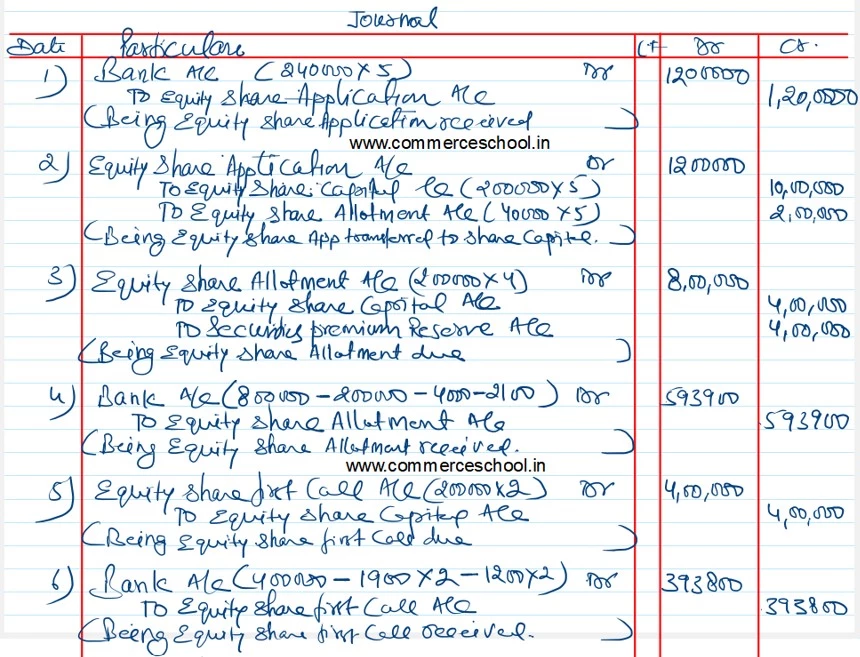 Journal
Date Particulars Lf Dr Cr.
1) Bank A/c (240000 x 5) Dr 1200000
To Equity Share Application A/c 1,20,0000
(Being Equity Share Application received)
www.commerceschool.in
2) Equity Share Application A/c Dr 1200000
To Equity Share Capital A/c (200000 x 5) 10,00,000
To Equity Share Allotment A/c (40000 x 5) 2,00,000
(Being Equity Share App transferred to Share Capital.)
3) Equity Share Allotment A/c (200000 x 4) Dr 8,00,000
To Equity Share Capital A/c 4,00,000
To Securities premium Reserve A/c 4,00,000
(Being Equity Share Allotment due)
4) Bank A/c (800000 - 200000 - 4000 - 2100) Dr 593900
To Equity Share Allotment A/c 593900
(Being Equity Share Allotment received.)
www.commerceschool.in
5) Equity Share first Call A/c (200000 x 2) Dr 4,00,000
To Equity Share Capital A/c 4,00,000
(Being Equity Share first Call due)
6) Bank A/c (400000 - 1900 x 2 - 1200 x 2) Dr 393800
To Equity Share first Call A/c 393800
(Being Equity Share first Call received.)